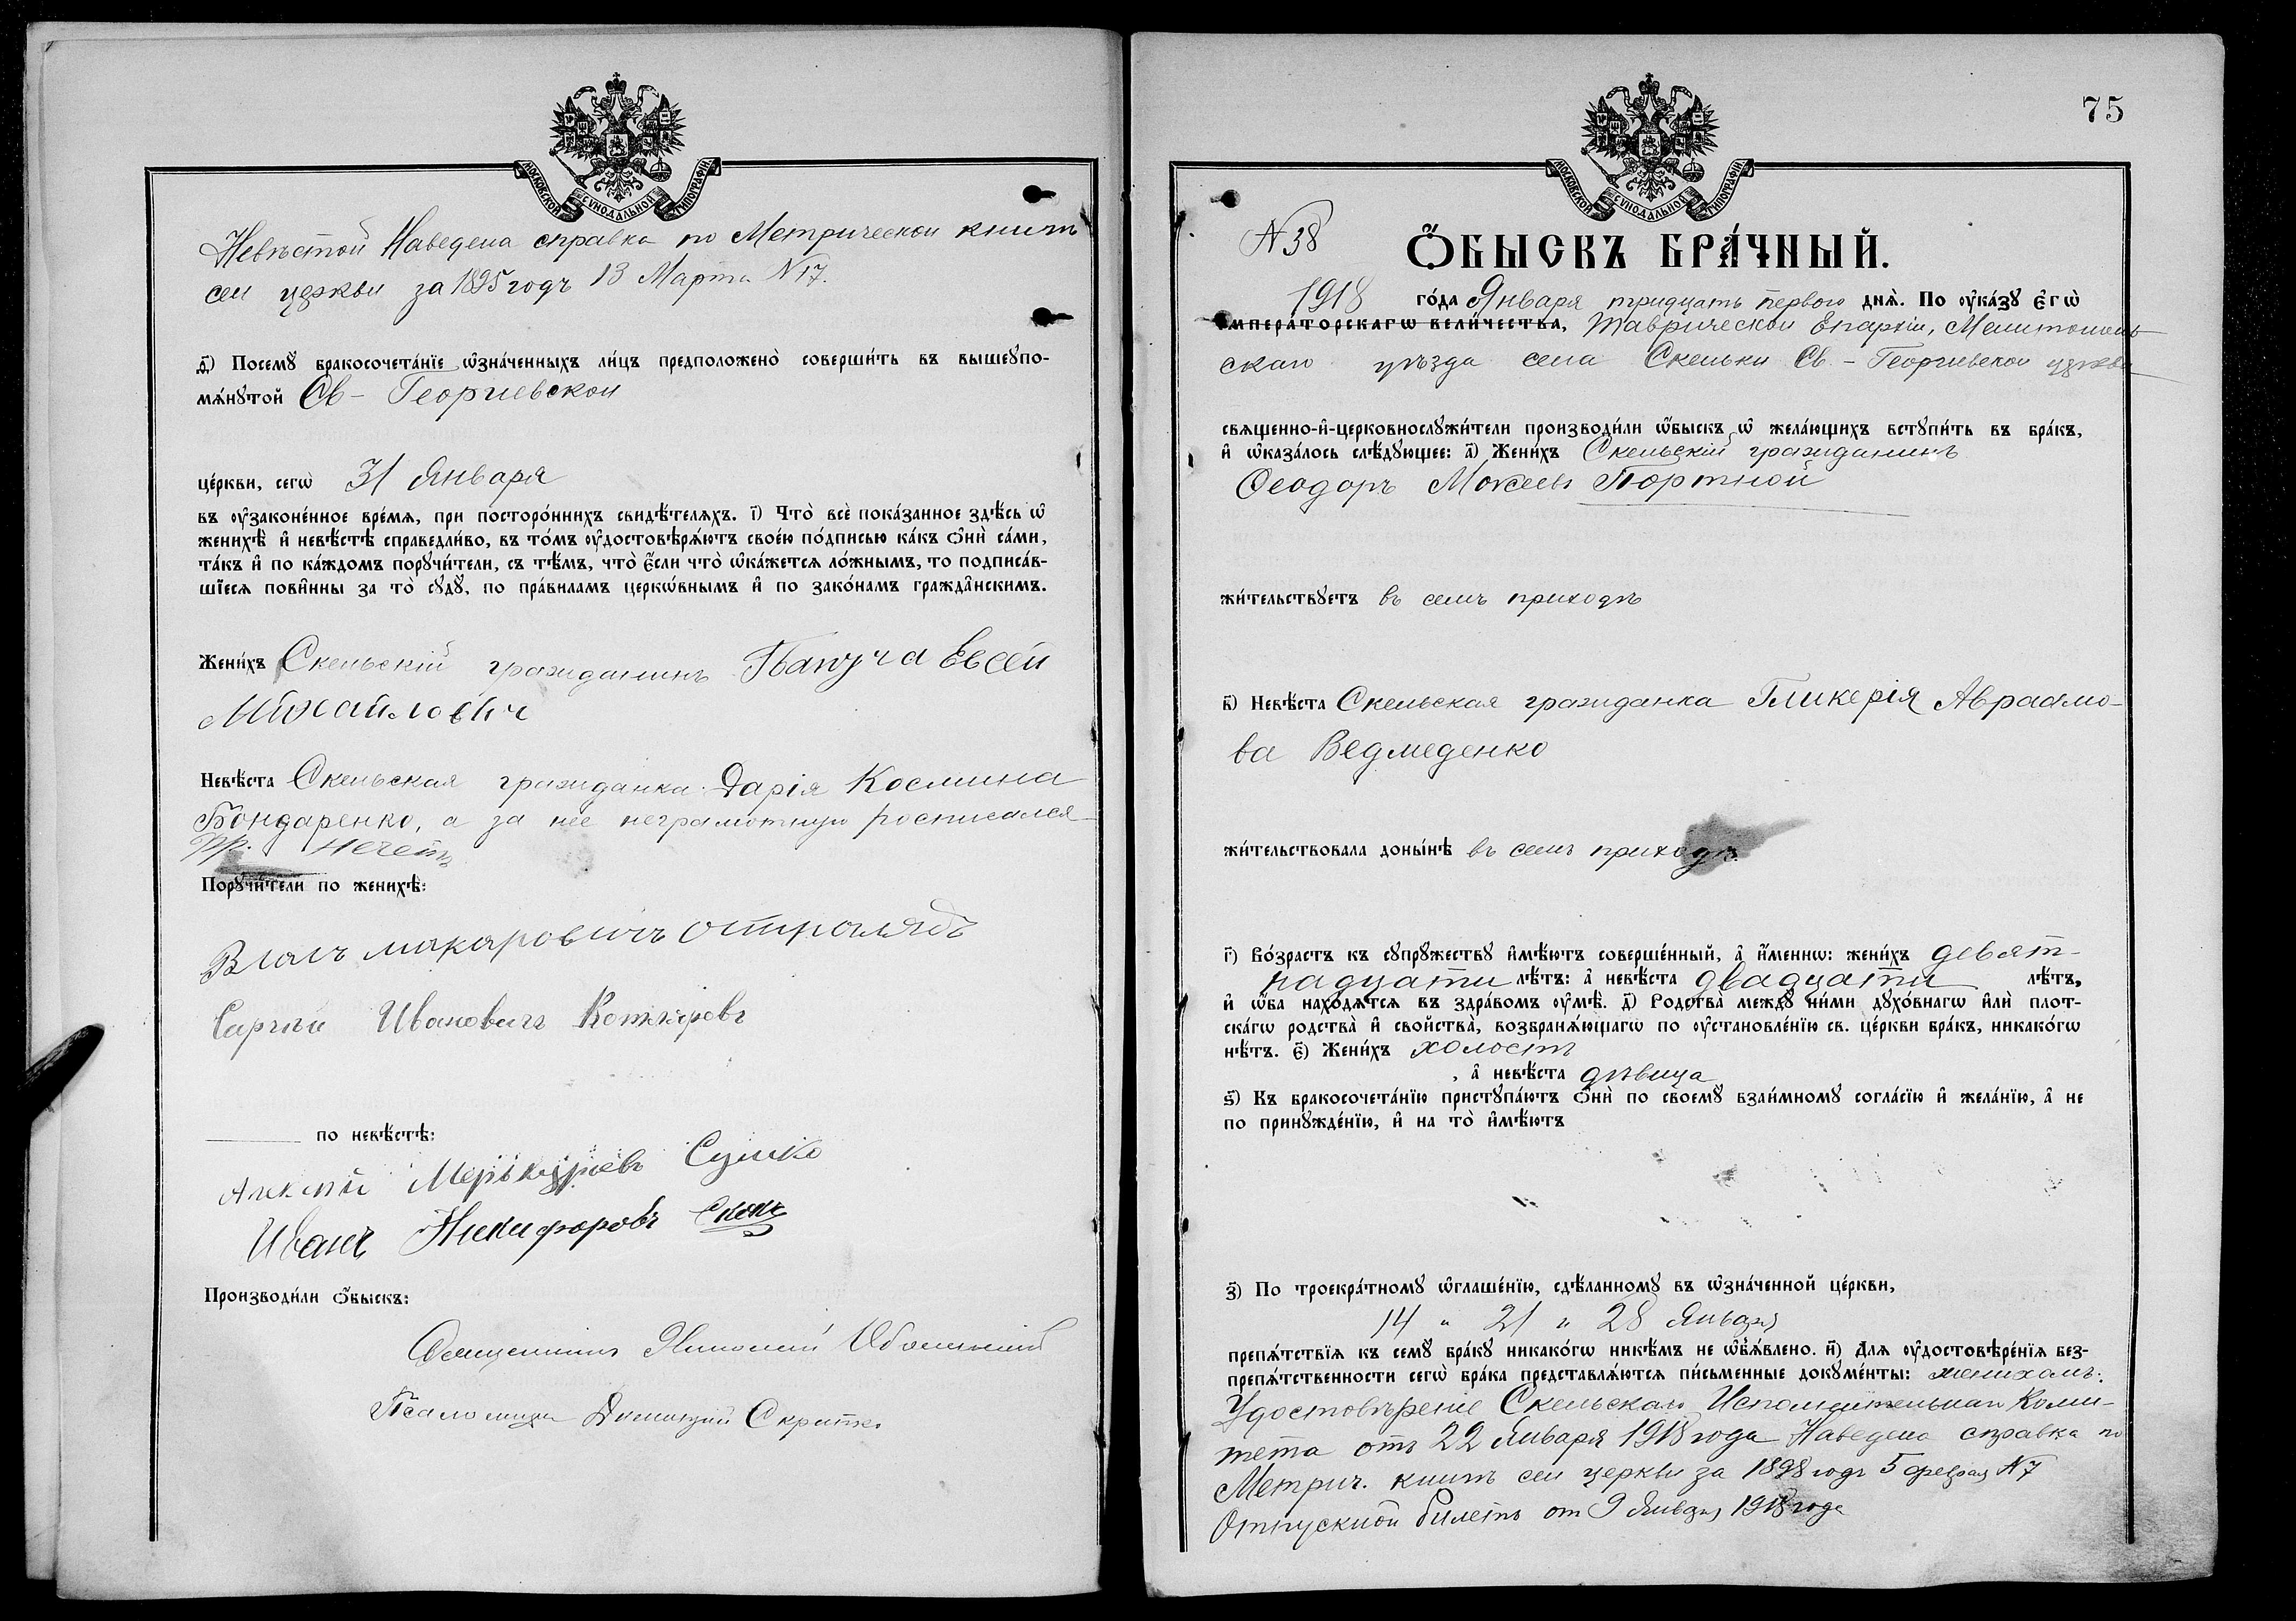 МОСКОВСКОЙ СѴНОДАЛЬНОЙ ТИПОГРАФІИ
Невѣстой Наведена справка по Метрической книгѣ
сей церкви за 1895 годъ 13 Марта N 17.
д҃і) Посемꙋ̀ бракосочета́нїе ѡ҆зна́ченныхъ ли́цъ предположено̀ соверши́ть въ вышеꙋпо-
мѧ́нꙋтой Св-Георгіевской
це́ркви, сегѡ̀ 31 Января
въ оу҆законе́нное вре́мѧ, при посторо́ннихъ свидѣ́телѧхъ. і҃) Что̀ всѐ пока́занное здѣ́сь ѡ҆
женихѣ̀ и҆ невѣ́стѣ справедли́во, въ то́мъ оу҆достовѣрѧ́ютъ свое́ю по́дписью ка́къ ѻ҆нѝ са́ми,
та́къ и҆ по ка́ждомъ порꙋчи́тели, съ тѣ́мъ, что̀ є҆́сли что̀ ѡ҆ка́жетсѧ ло́жнымъ, то подписа́в-
шїесѧ пови́нны за то̀ сꙋдꙋ̀, по пра́виламъ церко́внымъ и҆ по зако́намъ гражда́нскимъ.
Жени́хъ Скельскій гражданинъ Пануча Евсей
Михайловичъ
Невѣ́ста Скельская гражданка Дарія Космина
Бондаренко, а за нее неграмотную росписался
Гр. Нечетъ
Порꙋчи́тели по женихѣ̀:
макаровичъ
Сергѣй Ивановичъ Котляровъ
по невѣ́стѣ:
Алексѣй Меркуріевъ Сушко
Иванъ Никифоровъ Скокъ
Производи́ли ѻ҆́быскъ:
Священникъ Николай Оболенскій
Псаломщикъ Димитрій
75
МОСКОВСКОЙ СѴНОДАЛЬНОЙ ТИПОГРАФІИ
N 38
Ѻ҆́БЫСКЪ БРА́ЧНЫЙ.
1918 го́да Января тридцать перваго днѧ̀. По оу҆ка́зꙋ є҆гѡ̀
и҆мпера́торскагѡ вели́чества, Таврической Епархіи, Мелитополь-
скаго уѣзда села Скельки Св-Георгіевской церкви
свѧщенно-и҆-церковнослꙋжи́тели производи́ли ѡ҆́быскъ ѡ҆ жела́ющихъ встꙋпи́ть въ бра́къ,
и҆ ѡ҆каза́лось слѣ́дꙋющее: а҃) Жени́хъ Скельскій гражданинъ
Ѳеодоръ Мокеевъ Портной
жи́тельствꙋетъ въ семъ приходѣ
в҃) Невѣ́ста Скельская гражданка Гликерія Авраамо-
ва Ведмеденко
жи́тельствовала доны́нѣ въ семъ приходѣ
г҃) Во́зрастъ къ сꙋпрꙋ́жествꙋ и҆мѣ́ютъ соверше́нный, а҆ и҆́меннѡ: жени́хъ девят-
надцати лѣ́тъ: а҆ невѣ́ста двадцати лѣ́тъ,
и҆ ѻ҆́ба нахо́дѧтсѧ въ здра́вомъ оу҆мѣ̀. д҃) Родства̀ междꙋ̀ ни́ми дꙋхо́внагѡ и҆лѝ плот-
ска́гѡ родства̀ и҆ сво́йства, возбранѧ́ющагѡ по оу҆становле́нїю св. це́ркви бра́къ, никако́гѡ
нѣ́тъ. є҃) Жени́хъ холостъ
, а҆ невѣ́ста дѣвица
ѕ҃) Къ бракосочета́нїю пристꙋпа́ютъ ѻ҆нѝ по своемꙋ̀ взаи́мномꙋ согла́сїю и҆ жела́нїю, а҆ не
по принꙋжде́нїю, и҆ на то̀ и҆мѣ́ютъ
з҃) По троекра́тномꙋ ѡ҆глаше́нїю, сдѣ́ланномꙋ въ ѡ҆зна́ченной це́ркви,
14 " 21 и 28 Января
препѧ́тствїѧ къ семꙋ̀ бра́кꙋ никако́гѡ никѣ́мъ не ѡ҆б̾ѧ́влено. и҃) Длѧ оу҆достовѣре́нїѧ без-
препѧ́тственности сегѡ̀ бра́ка представлѧ́ютсѧ пи́сьменные докꙋме́нты: женихомъ:
Удостовѣреніе Скельскаго Исполнительнаго Коми-
тета отъ 22 Января 1918 года Наведена справка по
Метрич. книгѣ сей церкви за 1898 годъ 5 февраля N 7
Отпускной билетъ от 9 Января 1918 года